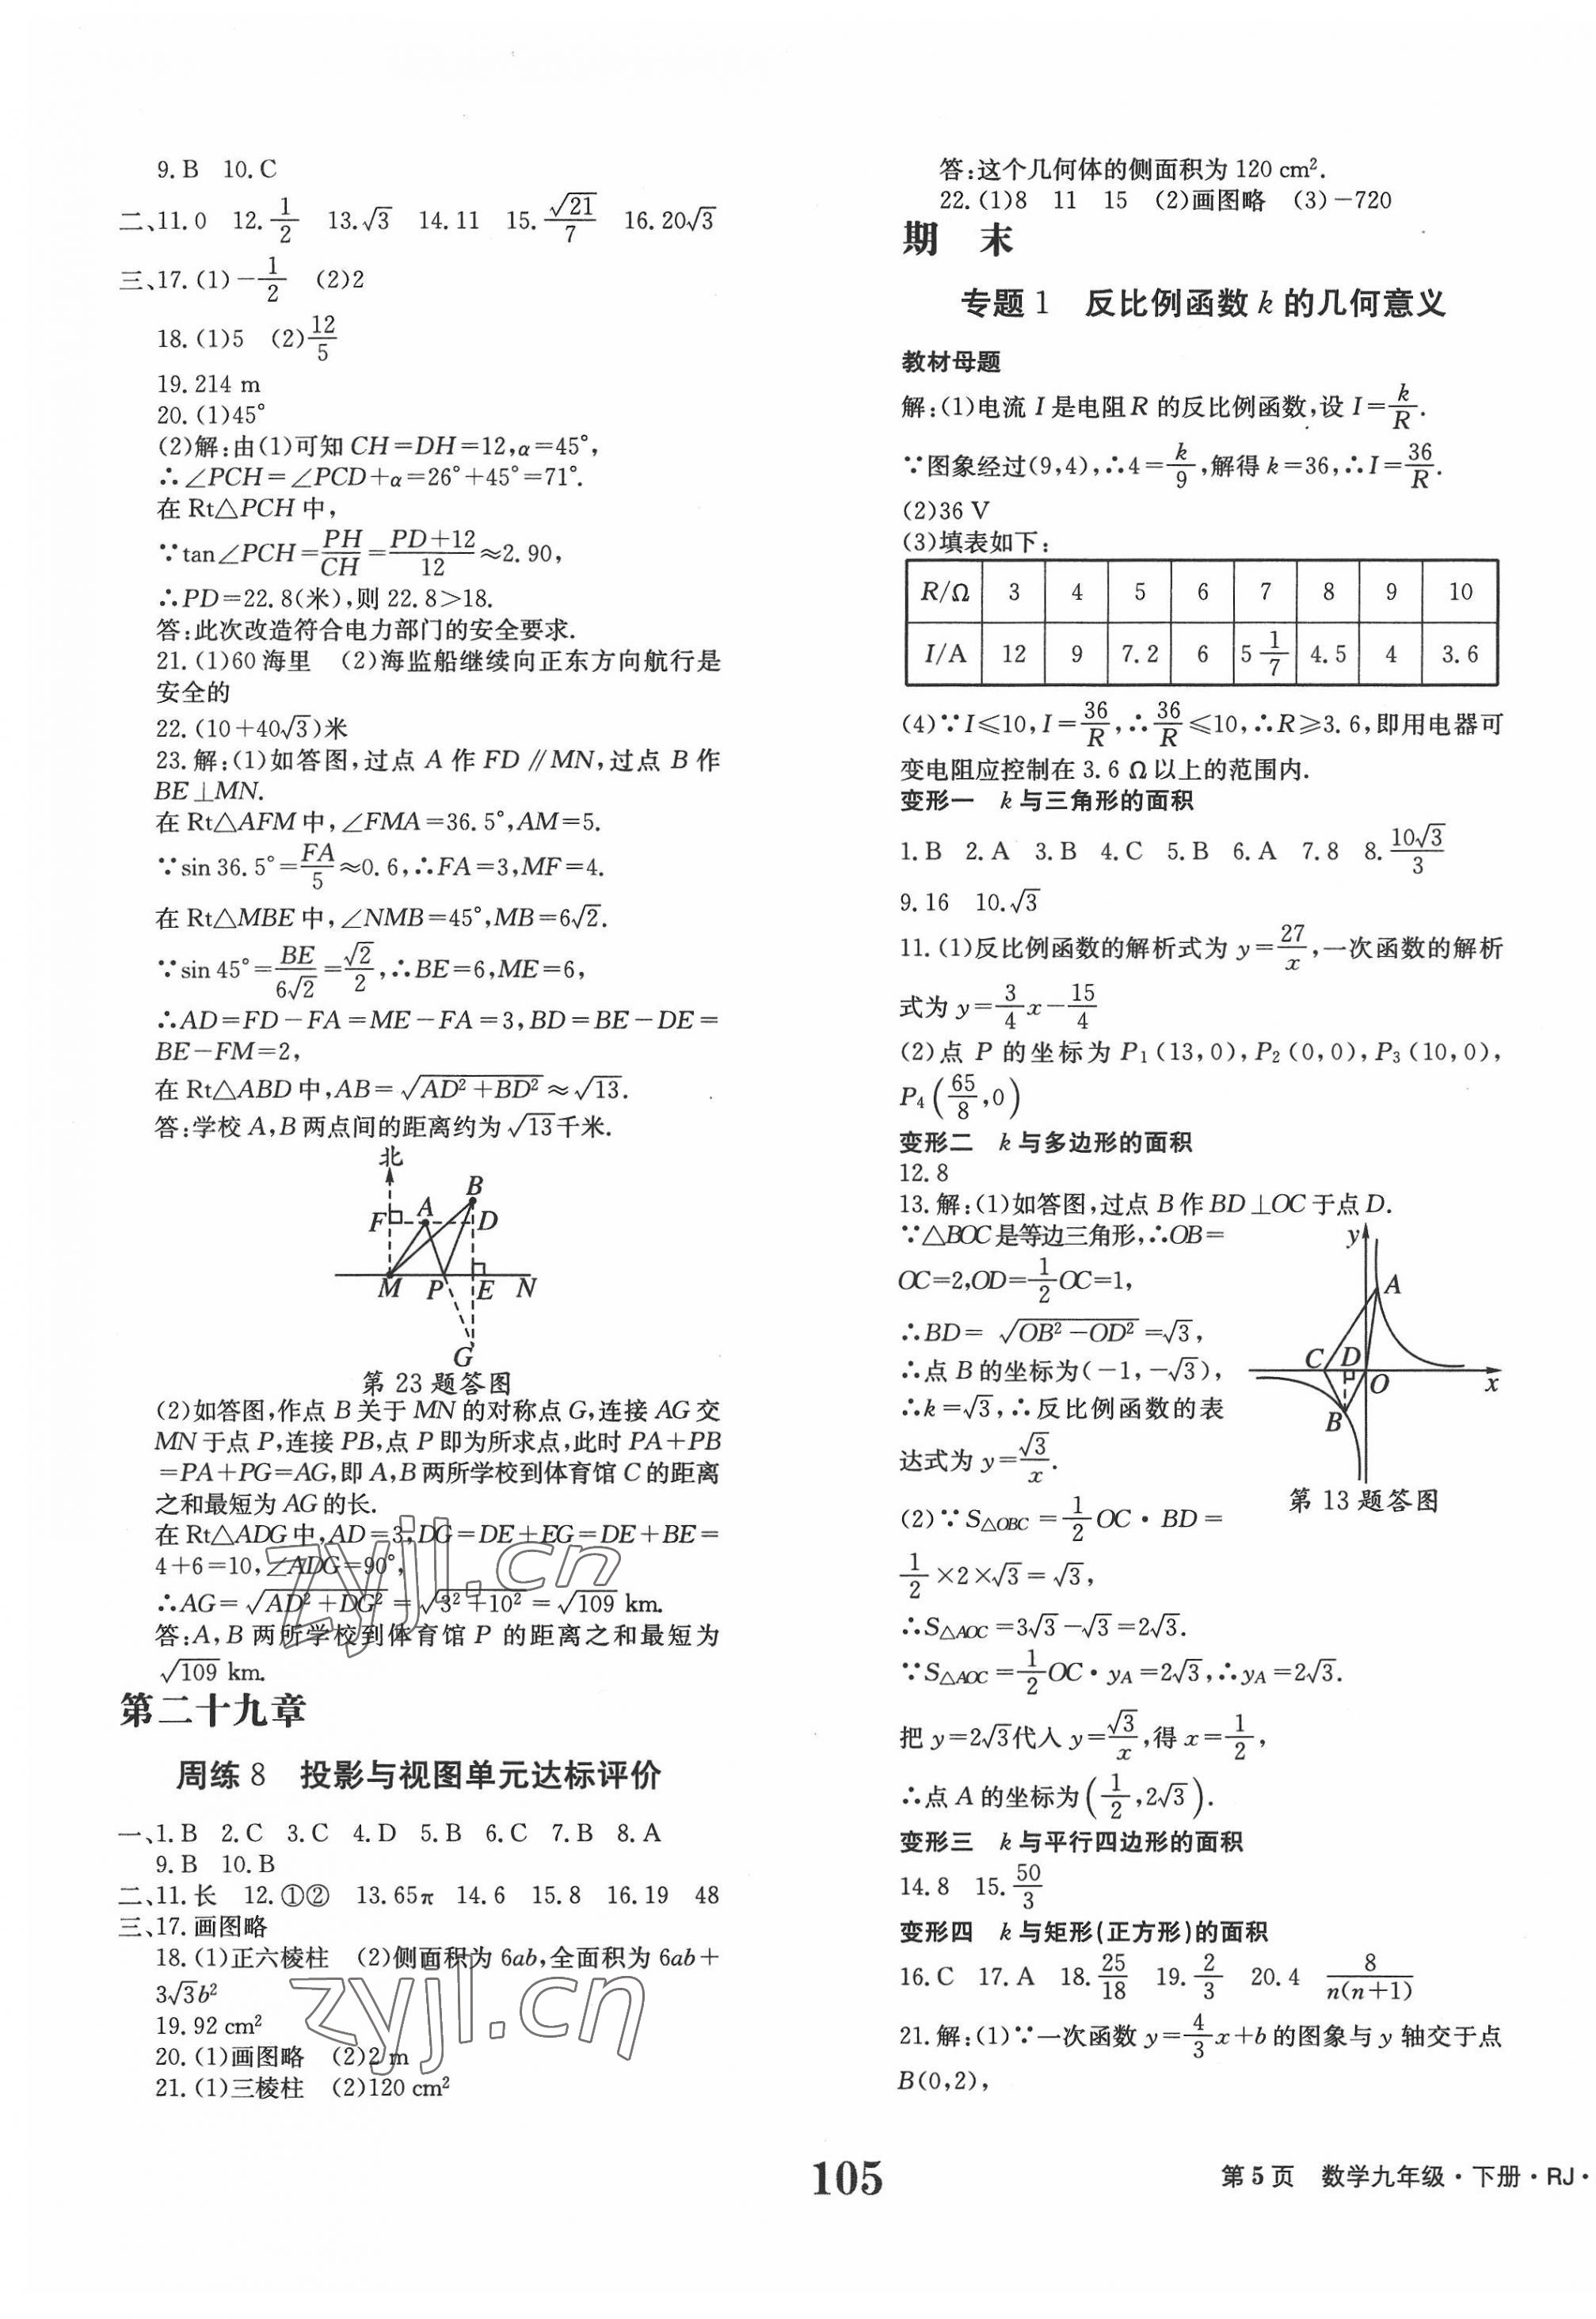 9. B　10. C
二、11. 0　12. 1/2　13. √3　14. 11　15. √21/7　16. 20√3
三、17. (1)－1/2　(2)2
18. (1)5　(2)12/5
19. 214 m
20. (1)45°
(2)解:由(1)可知 CH=DH=12,α=45°,
∴∠PCH=∠PCD+α=26°+45°=71°.
在 Rt△PCH 中,
∵tan∠PCH=PH/CH=(PD+12)/12≈2.90,
∴PD=22.8(米),则 22.8>18.
答:此次改造符合电力部门的安全要求.
21. (1)60 海里　(2)海监船继续向正东方向航行是
安全的
22. (10+40√3)米
23. 解:(1)如答图,过点 A 作 FD∥MN,过点 B 作
BE⊥MN.
在 Rt△AFM 中,∠FMA=36.5°,AM=5.
∵sin 36.5°=FA/5≈0.6,∴FA=3,MF=4.
在 Rt△MBE 中,∠NMB=45°,MB=6√2.
∵sin 45°=BE/6√2=√2/2,∴BE=6,ME=6,
∴AD=FD－FA=ME－FA=3,BD=BE－DE=
BE－FM=2,
在 Rt△ABD 中,AB=√(AD²+BD²)≈√13.
答:学校 A,B 两点间的距离约为√13千米.
北
B
F A D
M P E N
G
第 23 题答图
(2)如答图,作点 B 关于 MN 的对称点 G,连接 AG 交
MN 于点 P,连接 PB,点 P 即为所求点,此时 PA+PB
=PA+PG=AG,即 A,B 两所学校到体育馆 C 的距离
之和最短为 AG 的长.
在 Rt△ADG 中,AD=3,DG=DE+EG=DE+BE=
4+6=10,∠ADG=90°,
∴AG=√(AD²+DG²)=√(3²+10²)=√109 km.
答:A,B 两所学校到体育馆 P 的距离之和最短为
√109 km.
zyjl.cn
第二十九章
周练 8　投影与视图单元达标评价
一、1. B　2. C　3. C　4. D　5. B　6. C　7. B　8. A
9. B　10. B
二、11. 长　12. ①②　13. 65π　14. 6　15. 8　16. 19　48
三、17. 画图略
18. (1)正六棱柱　(2)侧面积为 6ab,全面积为 6ab+
3√3b²
19. 92 cm²
20. (1)画图略　(2)2 m
21. (1)三棱柱　(2)120 cm²
zyjl.cn
答:这个几何体的侧面积为 120 cm².
22. (1)8　11　15　(2)画图略　(3)－720
期　末
专题 1　反比例函数 k 的几何意义
教材母题
解:(1)电流 I 是电阻 R 的反比例函数,设 I=k/R.
∵图象经过(9,4),∴4=k/9,解得 k=36,∴I=36/R.
(2)36 V
(3)填表如下:
R/Ω 3 4 5 6 7 8 9 10
I/A 12 9 7.2 6 5 1/7 4.5 4 3.6
(4)∵I≤10,I=36/R,∴36/R≤10,∴R≥3.6,即用电器可
变电阻应控制在 3.6 Ω 以上的范围内.
变形一　k 与三角形的面积
1. B　2. A　3. B　4. C　5. B　6. A　7. 8　8. 10√3/3
9. 16　10. √3
11. (1)反比例函数的解析式为 y=27/x,一次函数的解析
式为 y=3/4x－15/4
(2)点 P 的坐标为 P₁(13,0),P₂(0,0),P₃(10,0),
P₄(65/8,0)
变形二　k 与多边形的面积
12. 8
13. 解:(1)如答图,过点 B 作 BD⊥OC 于点 D.
∵△BOC 是等边三角形,∴OB=
OC=2,OD=1/2OC=1,
∴BD=√(OB²－OD²)=√3,
∴点 B 的坐标为(－1,－√3),
∴k=√3,∴反比例函数的表
达式为 y=√3/x.
y
A
C D
O x
B
第 13 题答图
(2)∵S△OBC=1/2OC·BD=
1/2×2×√3=√3,
∴S△AOC=3√3－√3=2√3.
∵S△AOC=1/2OC·yA=2√3,∴yA=2√3.
把 y=2√3代入 y=√3/x,得 x=1/2,
∴点 A 的坐标为(1/2,2√3).
变形三　k 与平行四边形的面积
14. 8　15. 50/3
变形四　k 与矩形(正方形)的面积
16. C　17. A　18. 25/18　19. 2/3　20. 4　8/n(n+1)
21. 解:(1)∵一次函数 y=4/3x+b 的图象与 y 轴交于点
B(0,2),
105
第 5 页　数学九年级·下册·RJ·